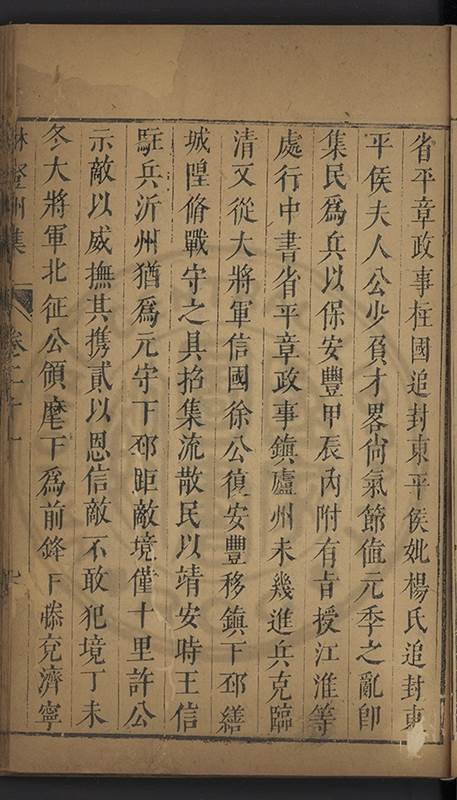 省平章政事柱國追封東平侯妣楊氏追封東
平侯夫人公少負才畧尙氣節値元季之亂卽
集民爲兵以保安豐甲辰內附有旨授江淮等
處行中書省平章政事鎭廬州未幾進兵克臨
清又從大將軍信國徐公復安豐移鎭下邳繕
城隍脩戰守之具招集流散民以靖安時王信
駐兵沂州猶爲元守下邳距敵境僅十里許公
示敵以威撫其携貳以恩信敵不敢犯境丁未
冬大將軍北征公領麾下爲前鋒下滕兗濟寧
林登州集 卷二十一